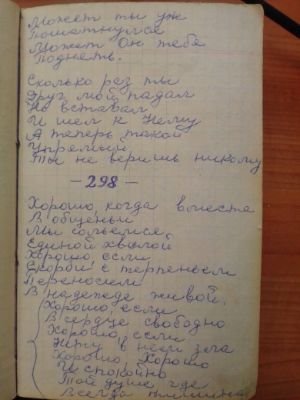 Может ты уж
Пошатнулся
Может Он тебе
Поднять.
Сколько раз ты
Друг мой падал
Но вставал
И шел к Нему
А теперь такой
Упрямый
Ты не веришь никому
- 298 -
Хорошо, когда вместе
В общеньи
Мы сольемся
Единой хвалой
Хорошо, если
Скорби с терпеньем
Переносим
В надежде живой.
Хорошо, если
В сердце свободно
Хорошо, если
Нету в нем зла
Хорошо, Хорошо
И спокойно
Той душе где
Всегда тишина